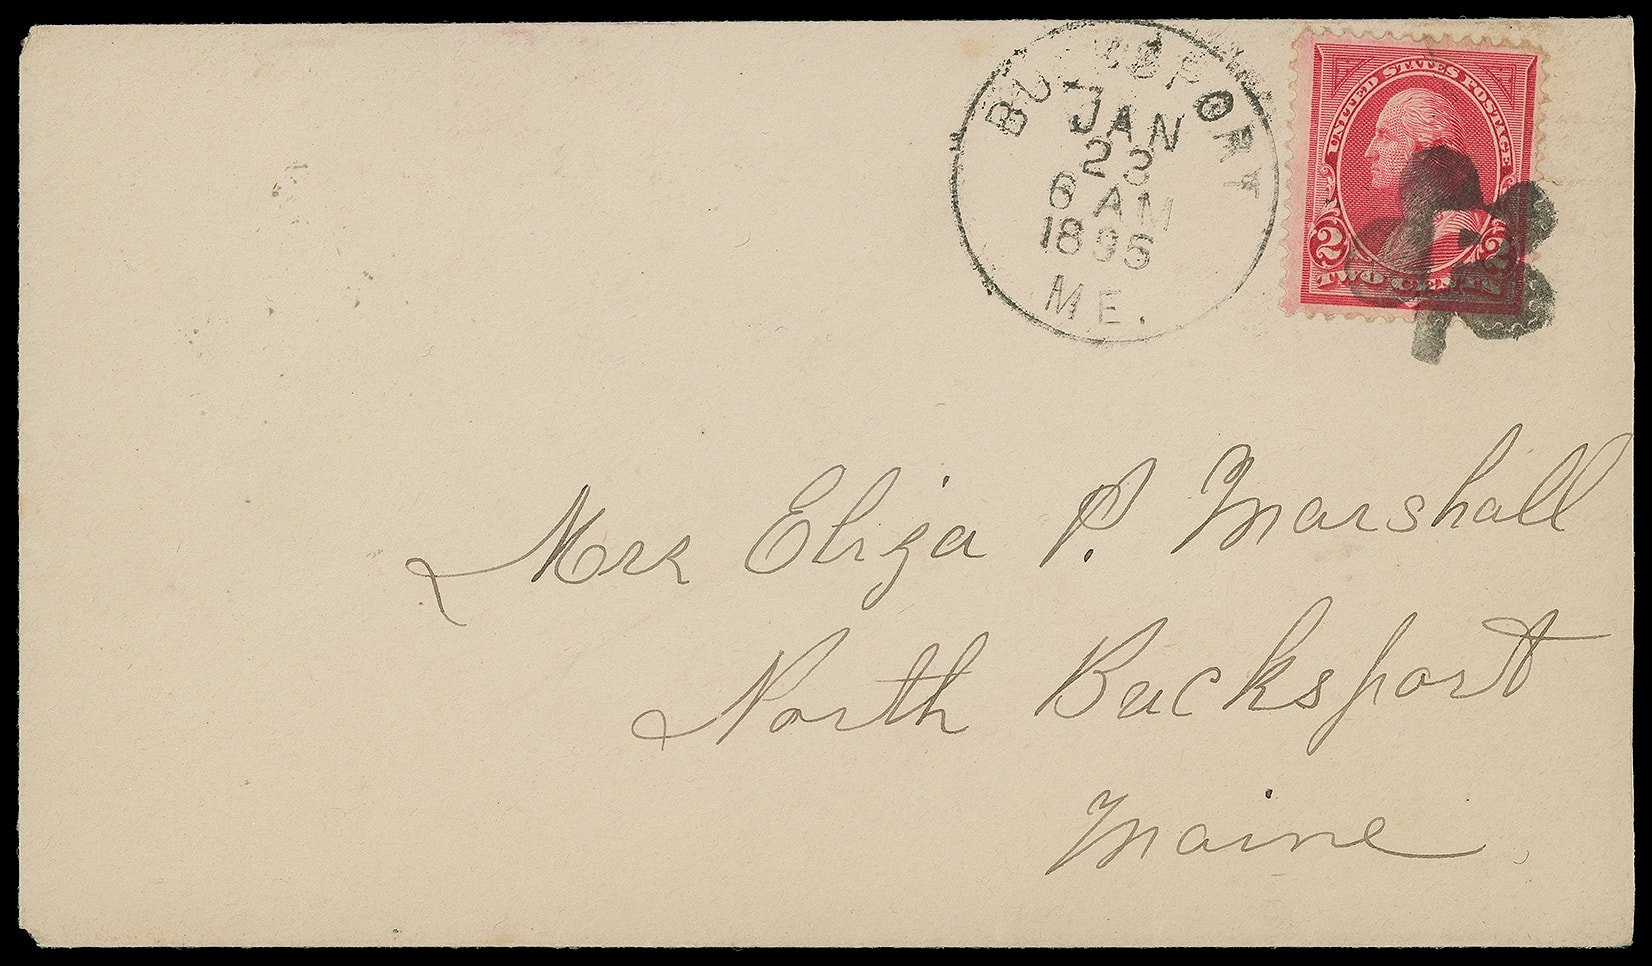 BUCKSPORT
JAN
23
6 AM
1895
ME.
UNITED STATES POSTAGE
2 2
TWO CENTS
Mrs Eliza P. Marshall
North Bucksport
Maine